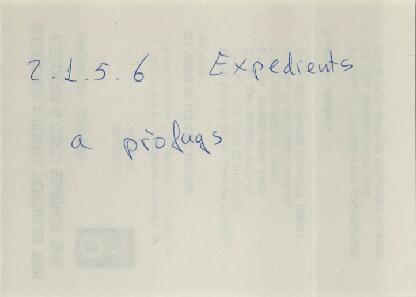 2.1.5.6 Expedients
a pròfugs